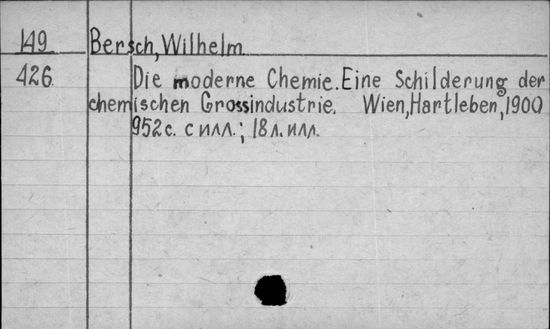 149 Bersch, Wilhelm
426 Die moderne Chemie. Eine Schilderung der
chemischen Grossindustrie. Wien, Hartleben, 1900
952с. с илл.; 18л. илл.